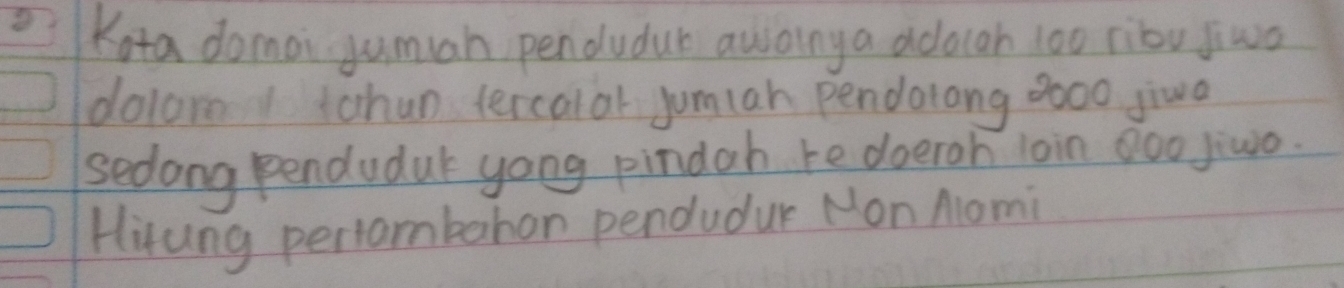 2. Kota domai jumlah penduduk awalnya adalah 100 ribu jiwa
dalam 1 tahun tercatat jumlah pendatang 2000 jiwa
sedang penduduk yang pindah ke daerah lain 800 jiwa.
Hitung pertambahan penduduk Non Alami